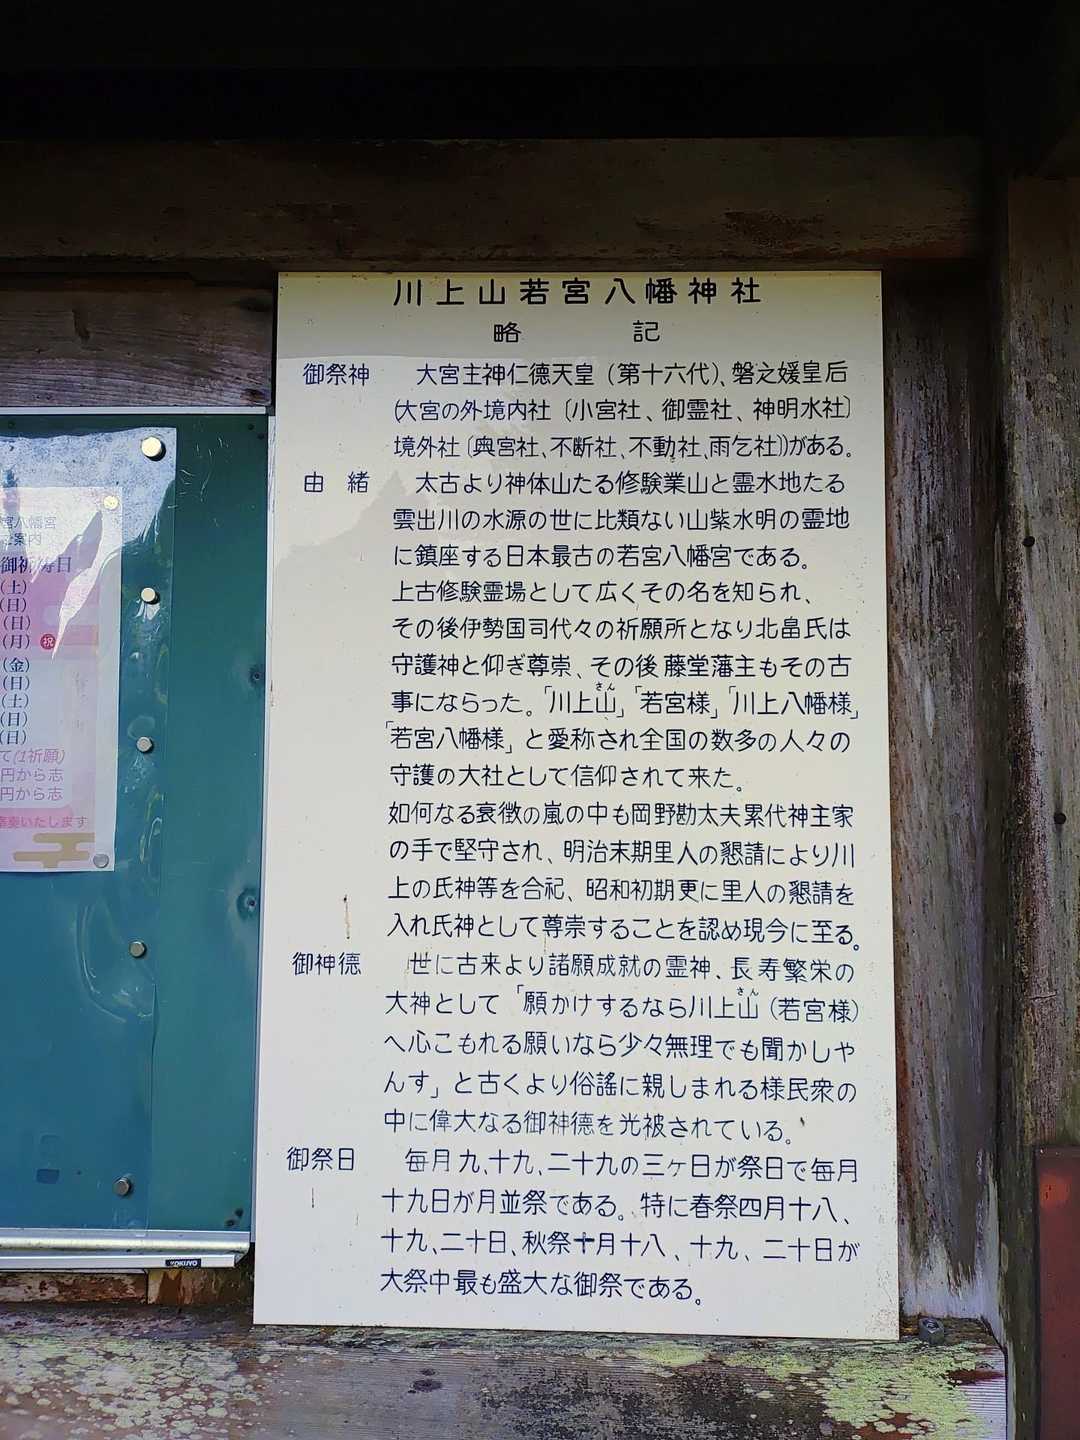 川上山若宮八幡神社
略記
御祭神 大宮主神仁徳天皇（第十六代）、磐之媛皇后
(大宮の外境内社〔小宮社、御霊社、神明水社〕
境外社〔興宮社、不断社、不動社、雨乞社〕)がある。
由緒 太古より神体山たる修験業山と霊水地たる
雲出川の水源の世に比類ない山紫水明の霊地
に鎮座する日本最古の若宮八幡宮である。
上古修験霊場として広くその名を知られ、
その後伊勢国司代々の祈願所となり北畠氏は
守護神と仰ぎ尊崇、その後藤堂藩主もその古
事にならった。「川上山」「若宮様」「川上八幡様」
さん
「若宮八幡様」と愛称され全国の数多の人々の
守護の大社として信仰されて来た。
如何なる衰徴の嵐の中も岡野勘太夫累代神主家
の手で堅守され、明治末期里人の懇請により川
上の氏神等を合祀、昭和初期更に里人の懇請を
入れ氏神として尊崇することを認め現今に至る。
御神徳 世に古来より諸願成就の霊神、長寿繁栄の
大神として「願かけするなら川上山（若宮様）
さん
へ心こもれる願いなら少々無理でも聞かしや
んす」と古くより俗謡に親しまれる様民衆の
中に偉大なる御神徳を光被されている。
御祭日 毎月九、十九、二十九の三ヶ日が祭日で毎月
十九日が月並祭である。特に春祭四月十八、
十九、二十日、秋祭十月十八、十九、二十日が
大祭中最も盛大な御祭である。
宮八幡宮
ご案内
御祈祷日
(土)
(日)
(日)
(月) 祝
(金)
(日)
(土)
(日)
(日)
て(1祈願)
円から志
円から志
奏いたします
KOKUYO